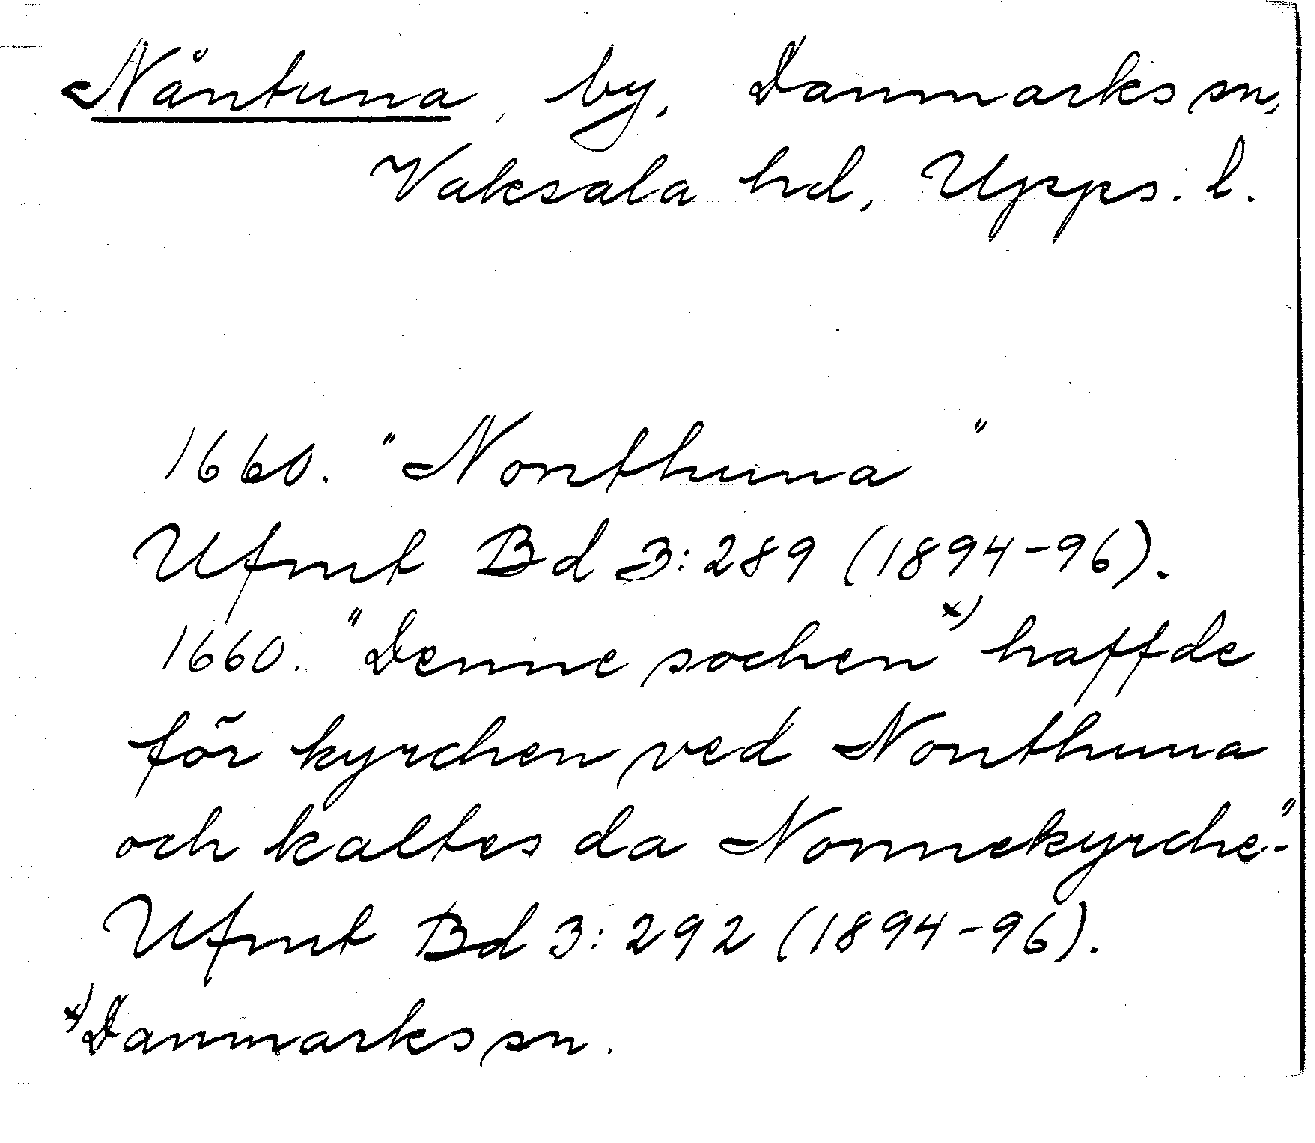 Nåntuna, by, Danmarks sn,
Vaksala hd, Upps. l.
1660. "Nonthuna"
Ufmt Bd 3:289 (1894-96).
1660. "Denne sochen x) haffde
för kyrchen ved Nonthuna
och kaltes da Nonnekyrche".
Ufmt Bd 3:292 (1894-96).
x) Danmarks sn.